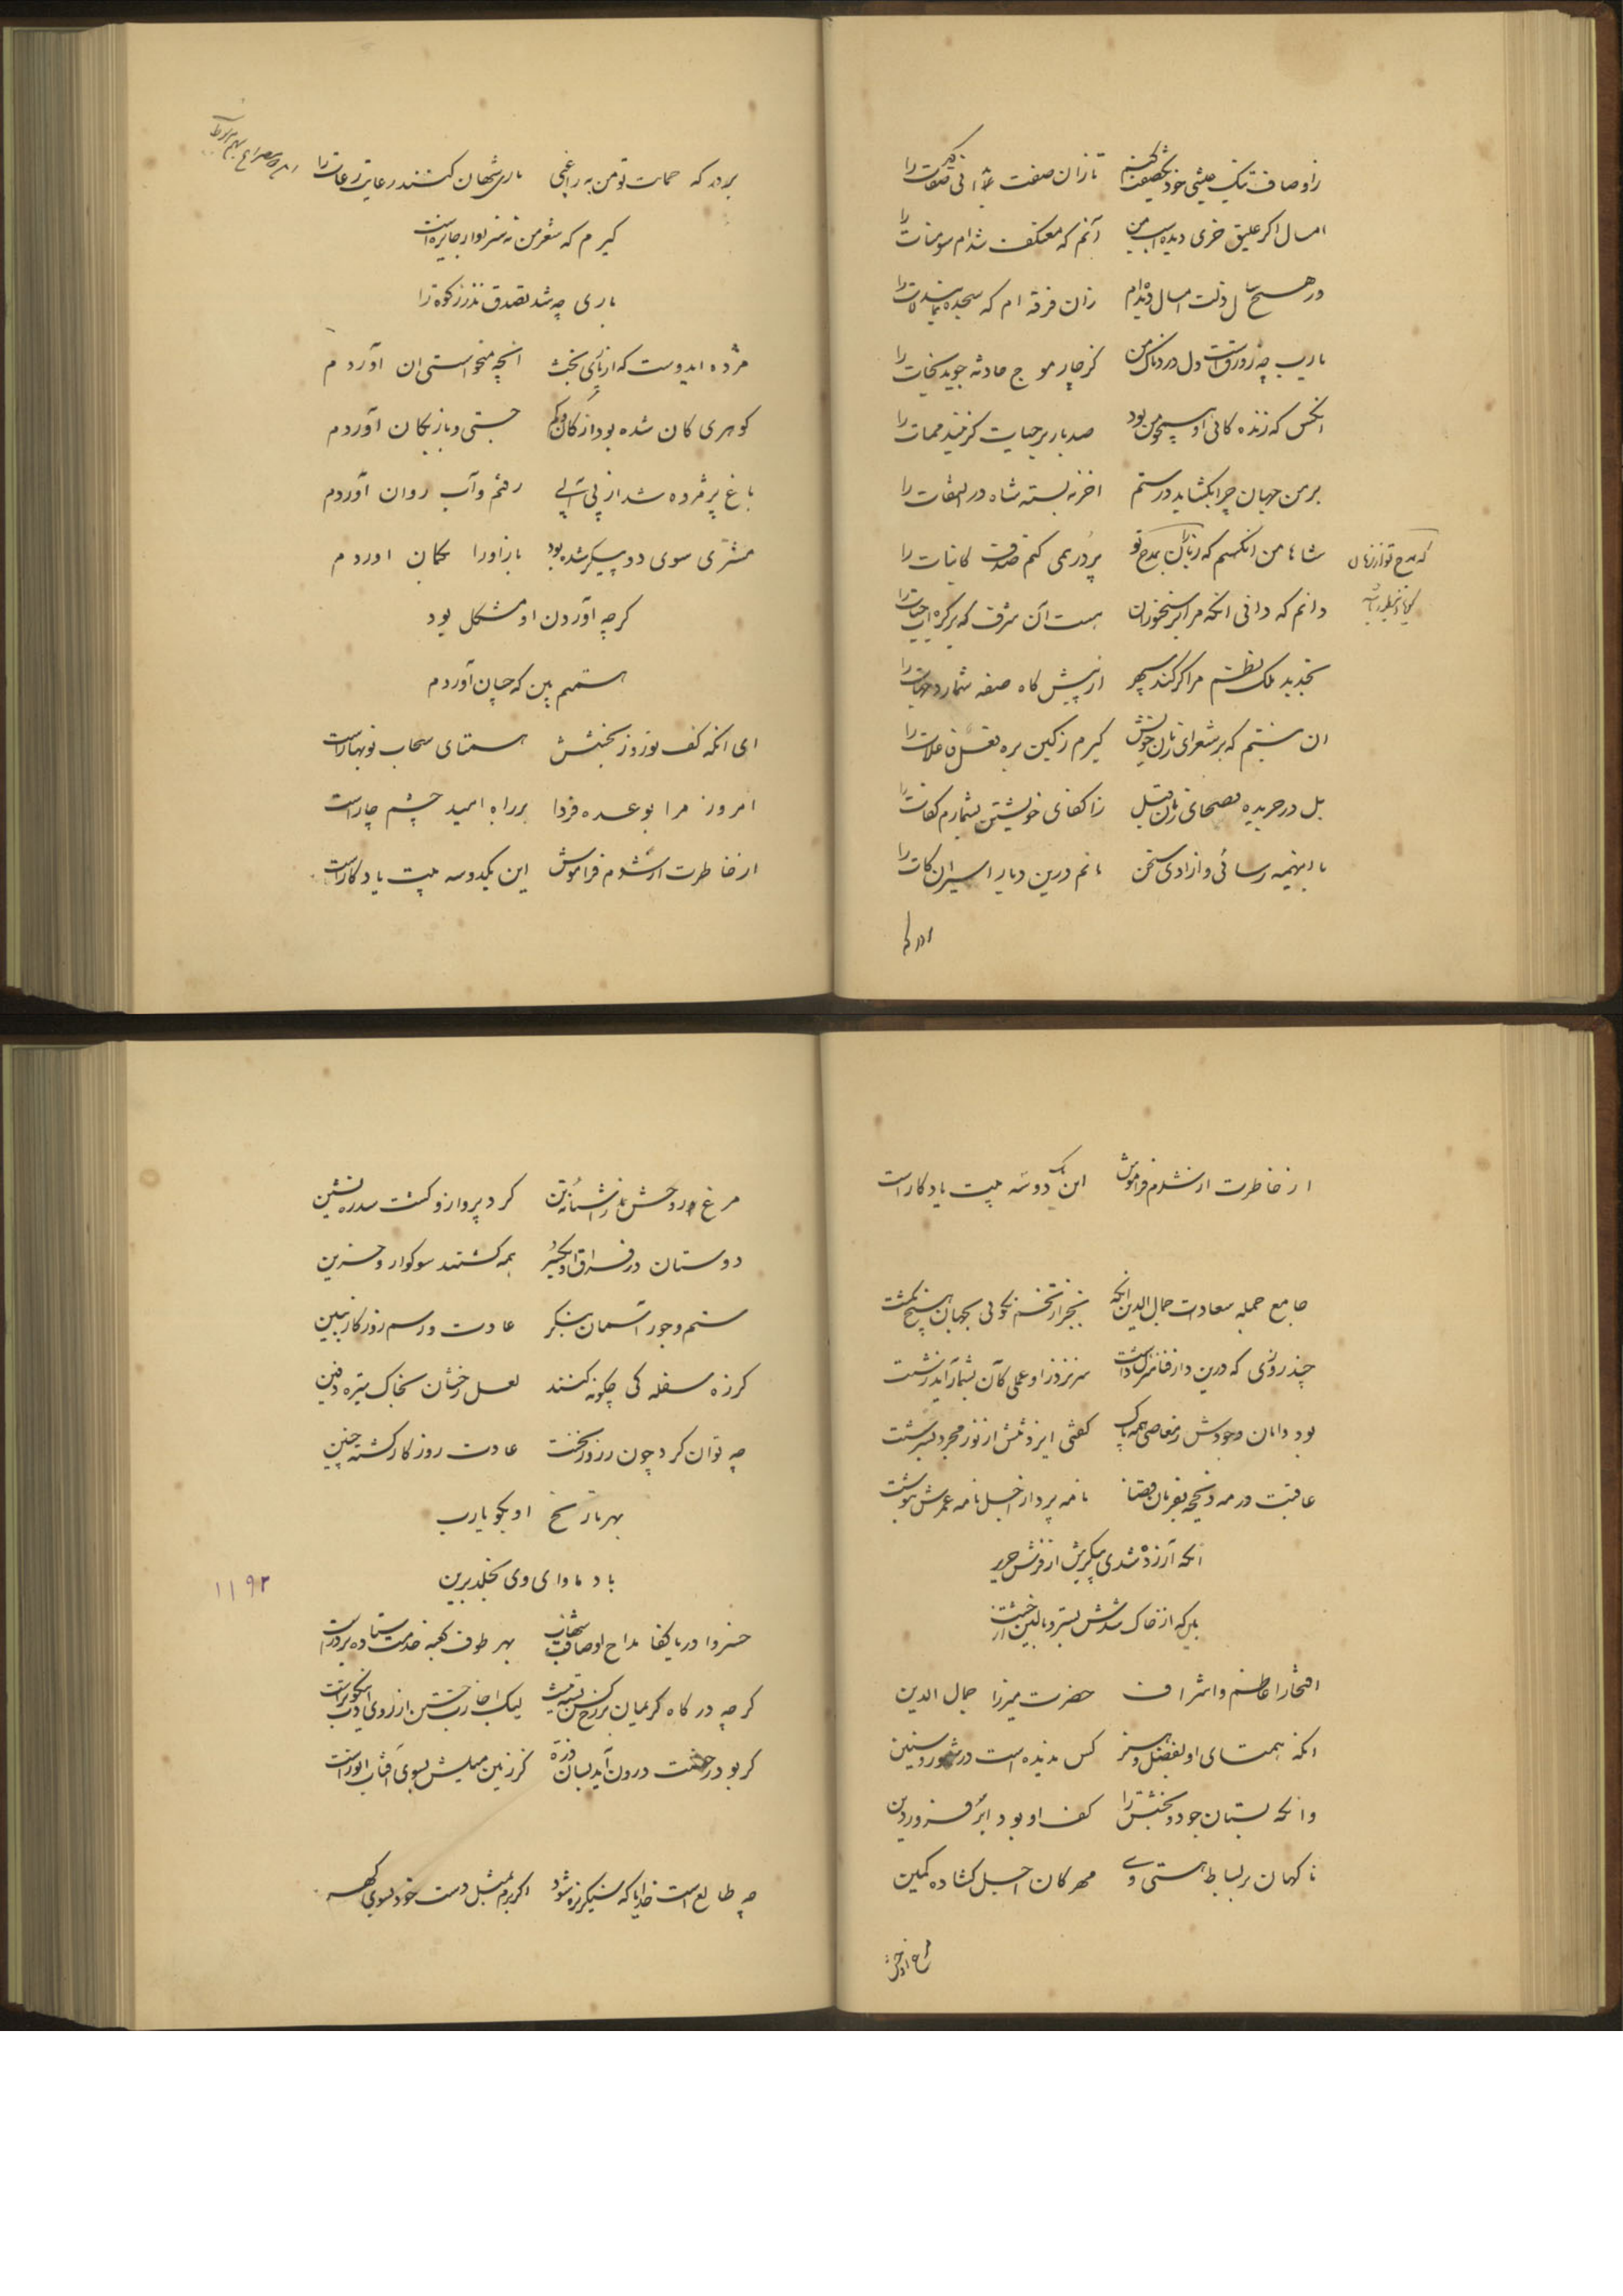 ز اوصاف نیک عیشی خود یکصفت کنم تا زان صفت ثنا صفات را
امسال اگر علیق خری دیده اسب من آنم که معتکف شدم سومنات را
در هیچ سال ذلت امسال دیده‌ام زان فرقه ام که سجده نمایند لات را
یارب چه زورقست دل دردناک من کز چار موج حادثه جوید نجات را
انکس که زنده کانی او همچو من بود صد بار بر حیات گزیند ممات را
بر من جهان چرا بگشاید در ستم اخر نه بسته شاه در التفات را
شاها من انکسم که زبان را بمدح تو پردر همی کنم صدف کاینات را
که مدح تو از زبان
دانم که دانی انکه مرا بر سخنوران هست آن شرف که بر کره اب حیات را
تجدید ملک نظم مرا گر کند سپهر از پیش کاه صفه شمارد جهات را
ان نیستم که بر شعرای زمان خویش گیرم ز کین بره فعل فاعلات را
بل در جریده فصحای زمان قبل ز اکفای خویشتن بشمارم کفات را
با اینهمه رسائی و ازادی سخن مانم درین دیار اسیران کات را
بردر که
بردر که حمات تو من به راغبی باری شهان کنند رعایت رعات را
گیرم که شعر من نه سزاوار جایزه است
باری چه شد تصدق نذر زکوة را
مژده ایدوست که از یاری بخت انچه میخواستی ان آوردم
گوهری کان شده بود از کان کم جستی و باز بکان آوردم
باغ پژمرده شد از بی آبی رفتم و آب روان آوردم
مشتری سوی دو پیکر شده بود باز اورا بکمان اوردم
گرچه آوردن او مشکل بود
هستم بین که چسان آوردم
ای انکه کف تو روز بخشش همتای سحاب نوبهار است
امروز مرا بوعده فردا بر راه امید چشم چار است
از خاطرت ار شدم فراموش این یکدوسه بیت یادگار است
از خاطرت ار شدم فراموش این یک دوسه بیت یادگار است
جامع جمله سعادات جمال الدین انکه بجز از تخم نکوئی بجهان هیچ نکشت
چند روزی که درین دار فنا منزل داشت سر نزد زو عملی کان بشمار آید زشت
بود دامان وجودش ز معاصی همه پاک گفتی ایزد تنش از نور مجرد بسرشت
عاقبت در مه ذیحجه بفرمان قضا نامه پرداز اجل نامه عمرش بنوشت
انکه آزرده شدی پیکرش از فرش حریر
بین که از خاک شدش بستر و بالین از خشت
افتخار اعاظم و اشراف حضرت میرزا جمال الدین
انکه همتای او بفضل و هنر کس ندیده است در شهور و سنین
وانکه بستان جود و بخشش را کف او بود ابر فروردین
ناکهان بر بساط هستی وی مهرکان اجل کشاده کمین
مرغ روحش
مرغ روحش ز اشیانه تن کرد پرواز و گشت سدره نشین
دوستان در فراق او یکسر همه گشتند سوکوار و حزین
ستم و جور آسمان بنگر عادت و رسم روزکار ببین
کز ره سفله کی چگونه کنند لعل رخشان بخاک تیره دفین
چه توان کرد چون ز روز نخست عادت روزکار گشته چنین
بهر تاریخ او بگو یارب
باد ماوای وی بخلد برین
۱۱۹۲
خسروا دریا کفا مداح اوصاف شهان بهر طوف کعبه خدمت ستاده بر در است
گرچه درگاه کریمان بر رخ کس بسته نیست لیک اجازت جستن از روی ادب نیکوتر است
گر بود رخصت درون آید بسان ذره کز زمین میلش بسوی آفتاب انور است
چه طالع است خدایا که سنگریزه شود اگر برم بمثل دست خود بسوی کهر